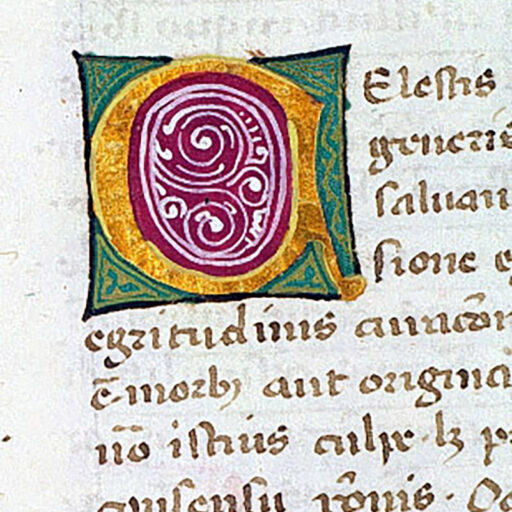 CElestis
generis
saluan
sione e
egritudinis curacōn
ē morbꝫ aut origina
nō istius culpe · lꝫ p
cuisensu rōnis · Oc